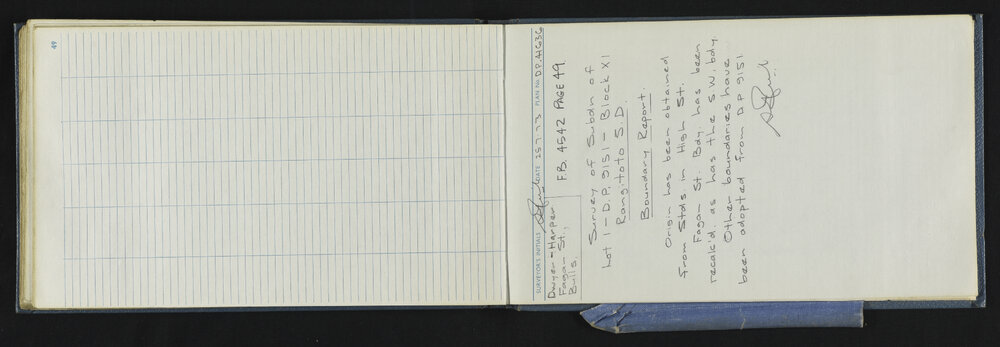 49
SURVEYOR'S INITIALS DATE 25.7.73 PLAN No. D.P. 41636
Dwyer - Harper
Fagan St.,
Bulls.
F.B. 4542 PAGE 49
Survey of Subdn of
Lot 1 - D.P. 9151 - Block XI
Rangitoto S.D.
Boundary Report
Origin has been obtained
from Stds. in High St.
Fagan St. Bdy has been
recalc'd. as has the S.W. bdy.
Other boundaries have
been adopted from D.P 9151